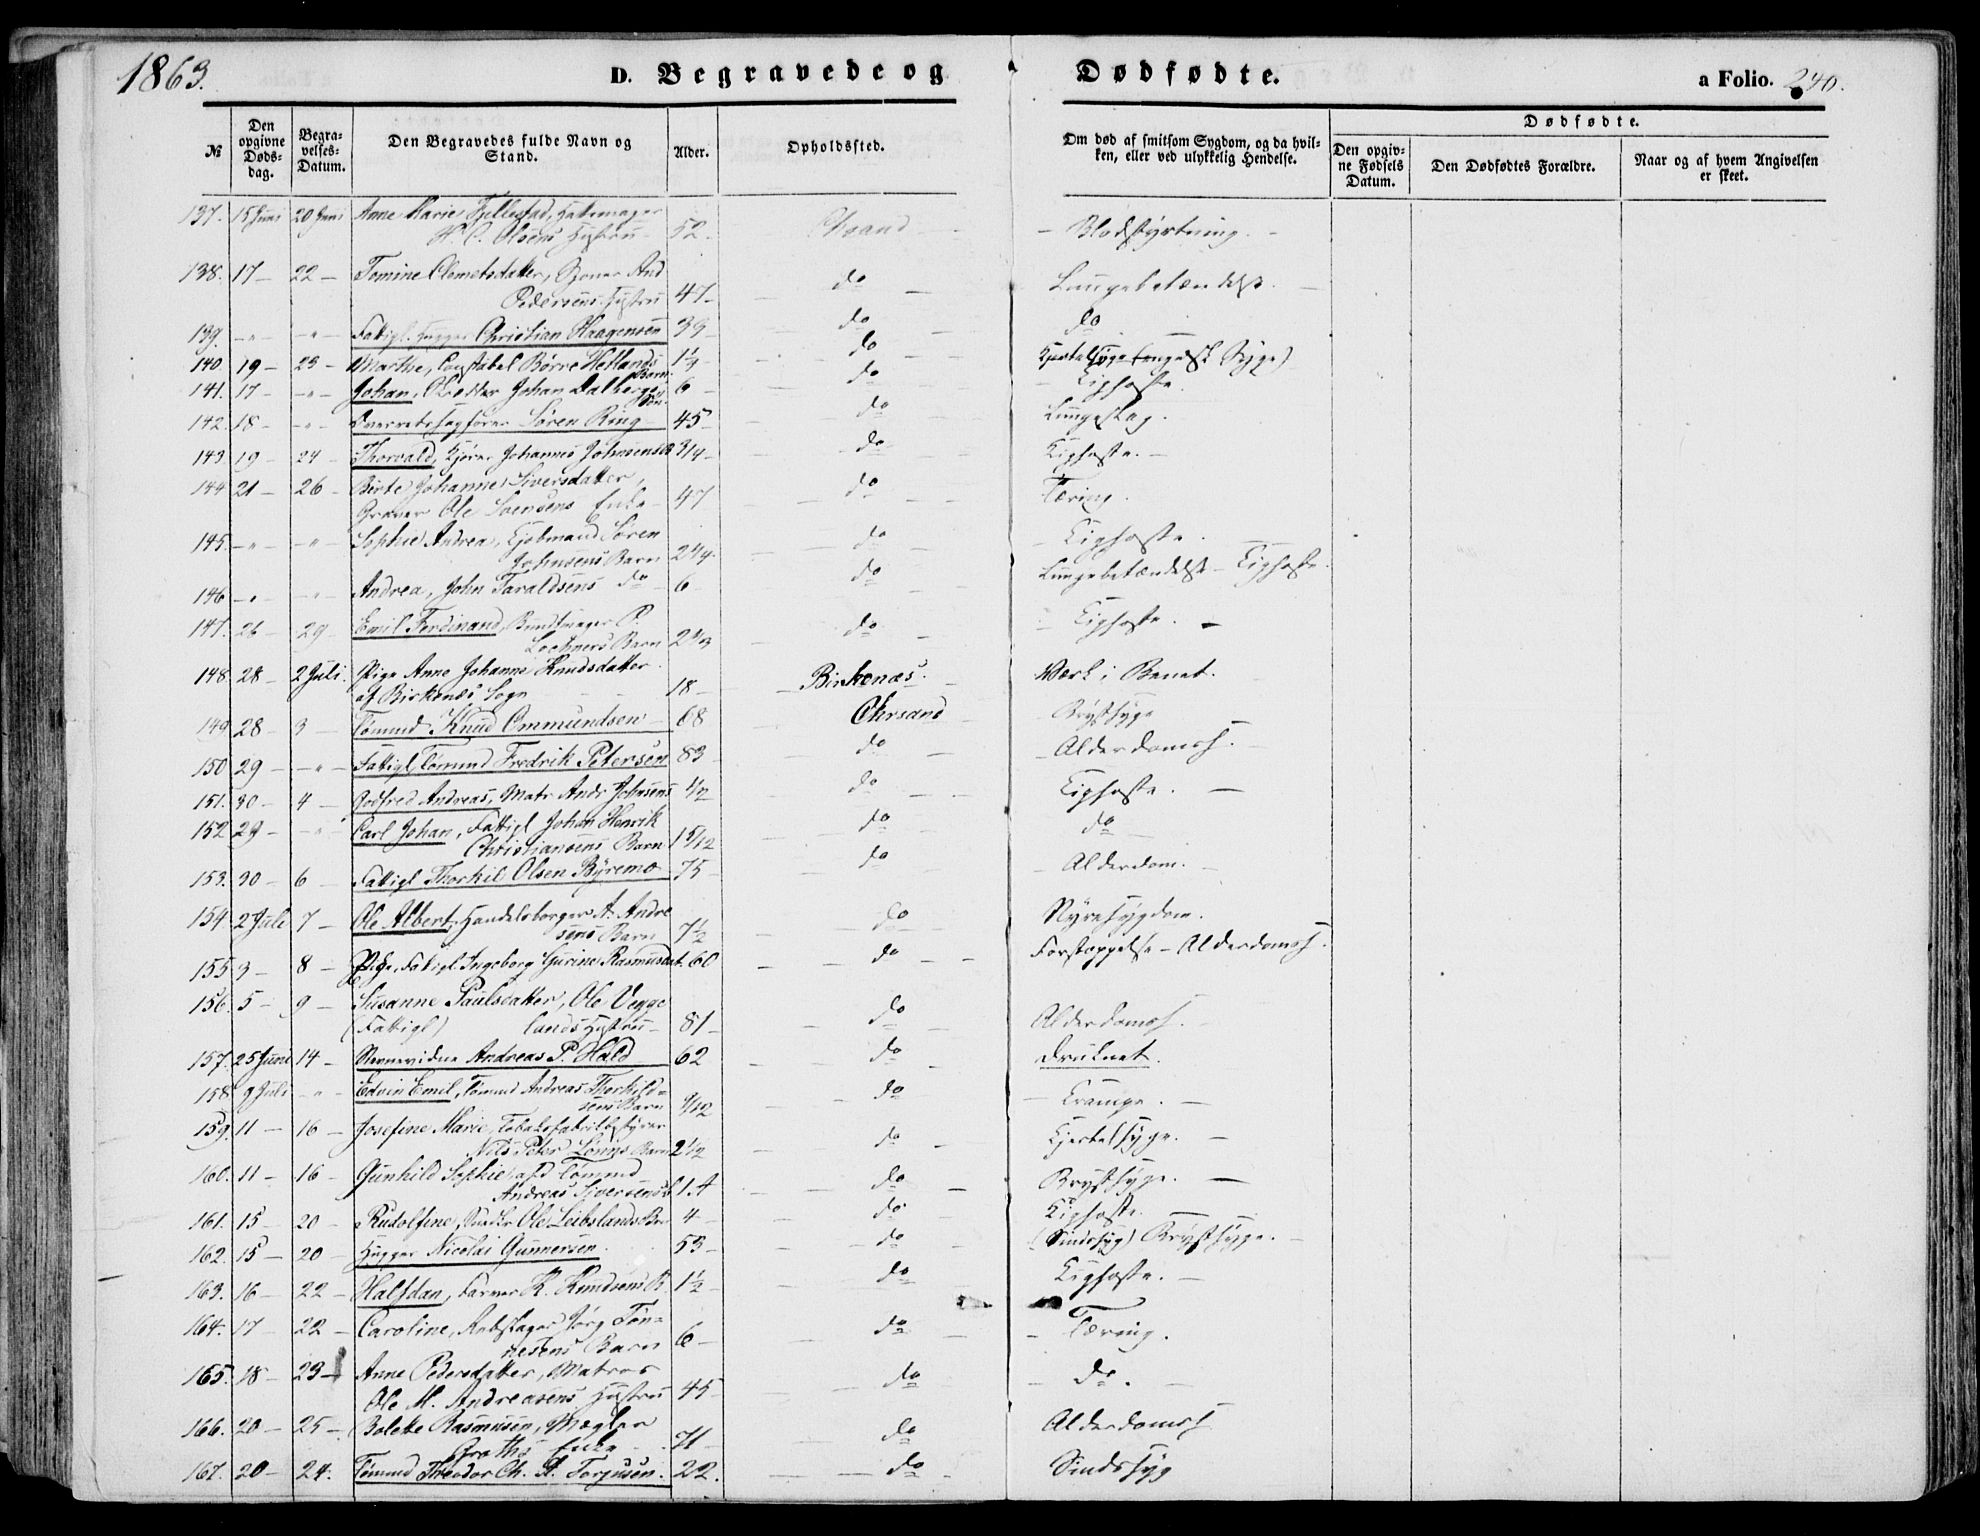 1863.
D. Begravede og Dødfødte.
a Folio. 240.
№
Den opgivne Døds-dag.
Begra-velses-Datum.
Den Begravedes fulde Navn og Stand.
Alder.
Opholdssted.
Om død af smitsom Sygdom, og da hvil-ken, eller ved ulykkelig Hendelse.
Dødfødte.
Den opgiv-ne Fødsels Datum.
Den Dødfødtes Forældre.
Naar og af hvem Angivelsen er skeet.
137. 15 Juni 20 Juni Anne Marie Fjellestad, Hattemager
H. C. Olsens Hustru 52. Chrsand Blodstyrtning.
138. 17 22 Tomine Clemetsdatter, And
Pedersens Hustru 47 do Lungebetændelse.
139. " " Fattigl. Hugger Christian Haagensen 39 do do
140. 19 23 Marthe, Constabel Børre Hetlands Barn 1 do Kjertelsyge (engelsk Syge)
141. 17 " Johan, Johan Dalbergs Søn 6 do Kighoste.
142. 18 " Overretssagfører Søren Ring 45 do Lungeslag.
143. 19 24 Thorvald, Johannes Johnsens B 3/4 do Kighoste.
144 21 26 Berte Johanne Siversdatter,
Graver Ole Svensens Enke 47 do Tæring.
145. " " Sophie Andrea, Kjøbmand Søren
Johnsens Barn 2 1/4 do Kighoste.
146 " " Andrea, John Taraldsens do 6 do Lungebetændelse - Kighoste.
147. 26 29 Emil Ferdinand, Bundtmager P.
Lochners Barn 2 2/3 do Kighoste.
148. 28 2 Juli. Pige Anne Johanne Knudsdatter
af Birkenes Sogn 18 Birkenæs. Værk i Benet.
149 28 3 Tømmd Knud Ommundsen 68 Chrsand Brystsyge
150 29 " Fattigl. Tømmd Fredrik Petersen 83 do Alderdomss.
151. 30 4 Godfred Andreas, Matr. Andr Johnsens 1/2 do Kighoste.
152 29 " Carl Johan, Fattigl Johan Henrik
Christiansens Barn 1 5/12 do do
153. 30 6 Fattigl Thorkil Olsen Byremo 75 do Alderdom.
154. 2 Juli 7 Ole Albert, Handelsborger A. Andre
sens Barn 7 1/2 do Nyresygdom.
155 3 8 Pige, Fattigl. Ingeborg Gurine Rasmusdat. 60 do Forstoppelse - Alderdomss.
156. 5 9 Susanne Paulsdatter, Ole Vegge
(Fattigl) lands Hustru 81 do Alderdomss.
157. 25 Juni 14 Stevnevidne Andreas P. Hald 62 do Druknet.
158 9 Juli " Edvin Emil, Tømmd Andreas Thorkild-
sens Barn 9/12 do Krampe.
159. 11 16 Josefine Marie, Tobaksfabrikbestyrer
Nils Peter Lønns Barn 2 1/2 do Kjertelsyge.
160. 11 16 Gunhild Sophie, afd Tømmd
Andreas Siversens B 14 do Brystsyge.
161. 15 20 Rudolfine, Ole Leibslands Bn 4 do Kighoste.
162. 15 20 Hugger Nicolai Gunnersen. 53 do (Sindssyg) Brystsyge.
163. 16 22 Halfdan, Farver K. Knudsens B. 1 1/2 do Kighoste.
164. 17 22 Caroline, Rebslager Jørg Tøn-
nesens Barn 6 do Tæring.
165. 18 23 Anne Pedersdatter, Matros
Ole M. Andreasens Hustru 45 do do.
166. 20 25 Bolette Rasmusen, Mægler
Groths Enke 71 do Alderdomss
167. 20 24. Tømmd Theodor Ch. A. Torjusen. 22. do Sindssyg